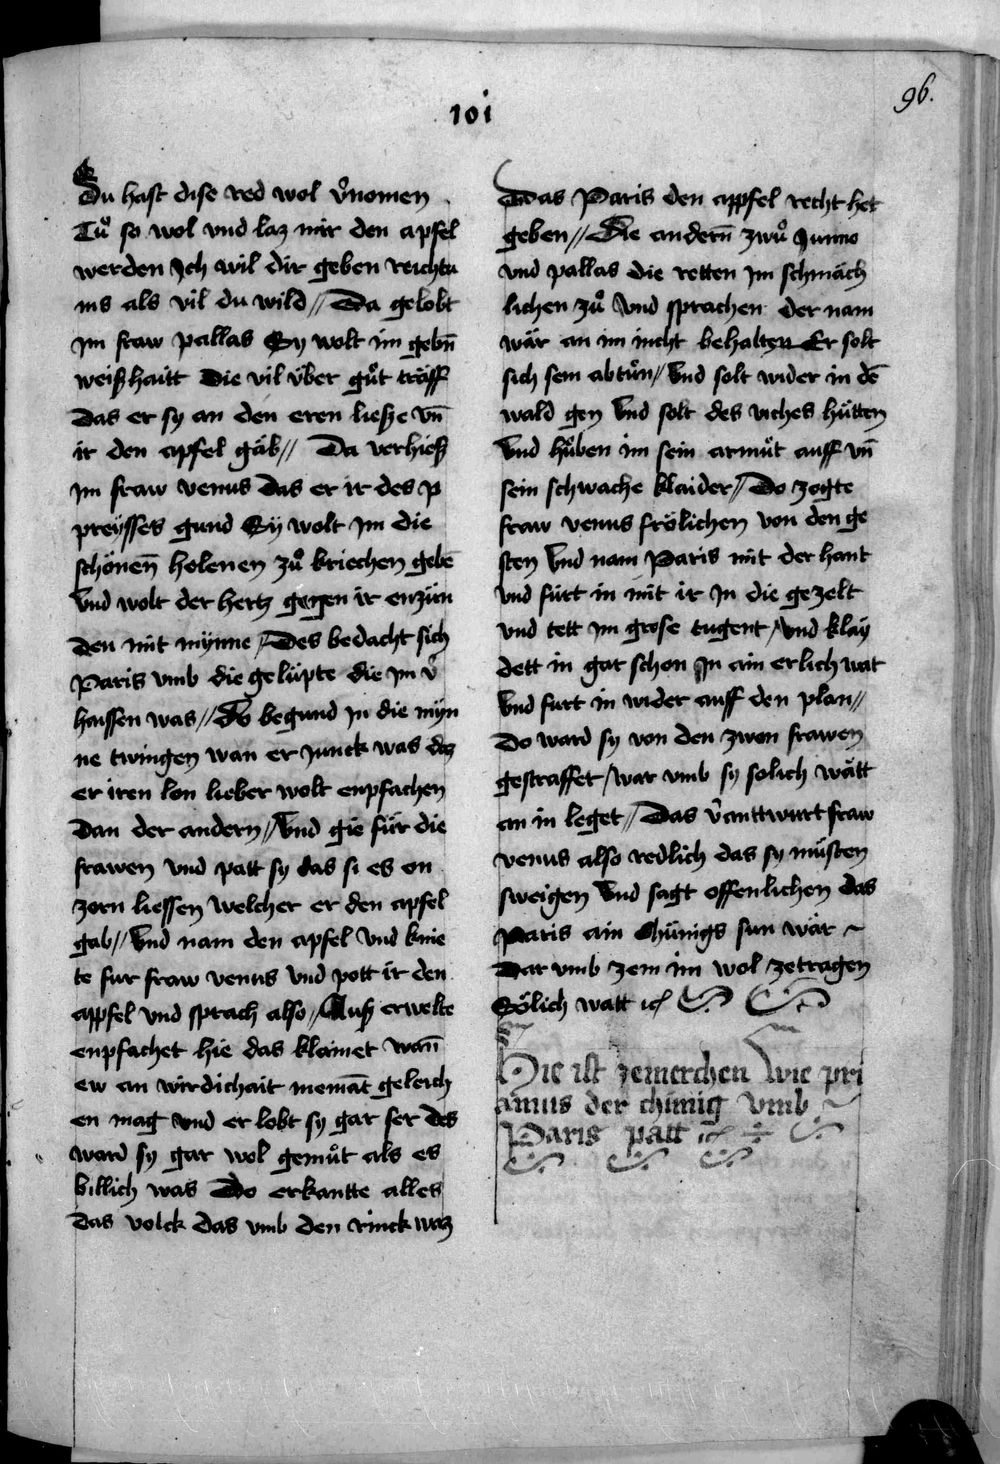 101
96.
Du hast dise red wol v̉nomen
Tů so wol vnd laz mir den apfel
werden Ich wil dir geben reichtu
ms als vil du wild // Da gelobt
Im fraw pallas Sy wolt im gebn̄
weißhaitt Die vil v̈ber gůt träff
Das er sy an den eren ließe vn̄
ir den apfel gäb // Da verhieß
Im fraw venus Das er ir des p
preÿsses gund Sÿ wolt Im die
schönen̄ holenen zů kriechen gebē
Vnd wolt der hertz gegen ir enzün
den mit mynne / Des bedacht sich
Paris vmb die gelüpte die Im v̉
haissen was // Do begund In die myn
ne twingen wan er Junck was daz
er iren lon lieber wolt enpfachen
Dan der andern // Vnd gie für die
frawen vnd patt sy das si es on
zorn liessen welcher er den apfel
gab // Vnd nam den apfel Vnd knie
te fur fraw venus Vnd pott ir den
appfel vnd sprach also / Auß erwelte
enpfachet hie das klainet wan̄
ew an wirdichait niemāt geleich
en mag vnd er lobt sy gar ser des
ward sy gar wol gemůt als es
billich was Do erkantte alles
das volck das vmb den rinck waz
Das Paris den appfel recht het
geben // Die andern̄ zwů Junno
vnd pallas die retten Im schmäch
lichen zů Vnd sprachen der nam
wär an im nicht behalten Er solt
sich sein abtůn // Vnd solt wider in dē
wald gen Vnd solt des viches hütten
Vnd hůben im sein armůt auff vn̄
sein schwache klaider // Do zogte
fraw venus frölichen von den ge
sten Vnd nam Paris mit der hant
vnd fürt in mit ir In die gezelt
vnd tett Im grose tugent / Vnd klay
dett in gar schon In ain erlich wat
Vnd furt in wider auff den plan //
Do ward sy von den zwen frawen
gestraffet / war vmb sy solich wätt
an in leget // Das v̉anttwurt fraw
venus also redlich das sy můsten
sweigen Vnd sagt offenlichen das
Paris ain chünigs sun wär ~
Dar vmb zem im wol zetragen
Sölich watt
Hie ist zemerchen Wie pri
amus der chünig vmb ~
Paris patt